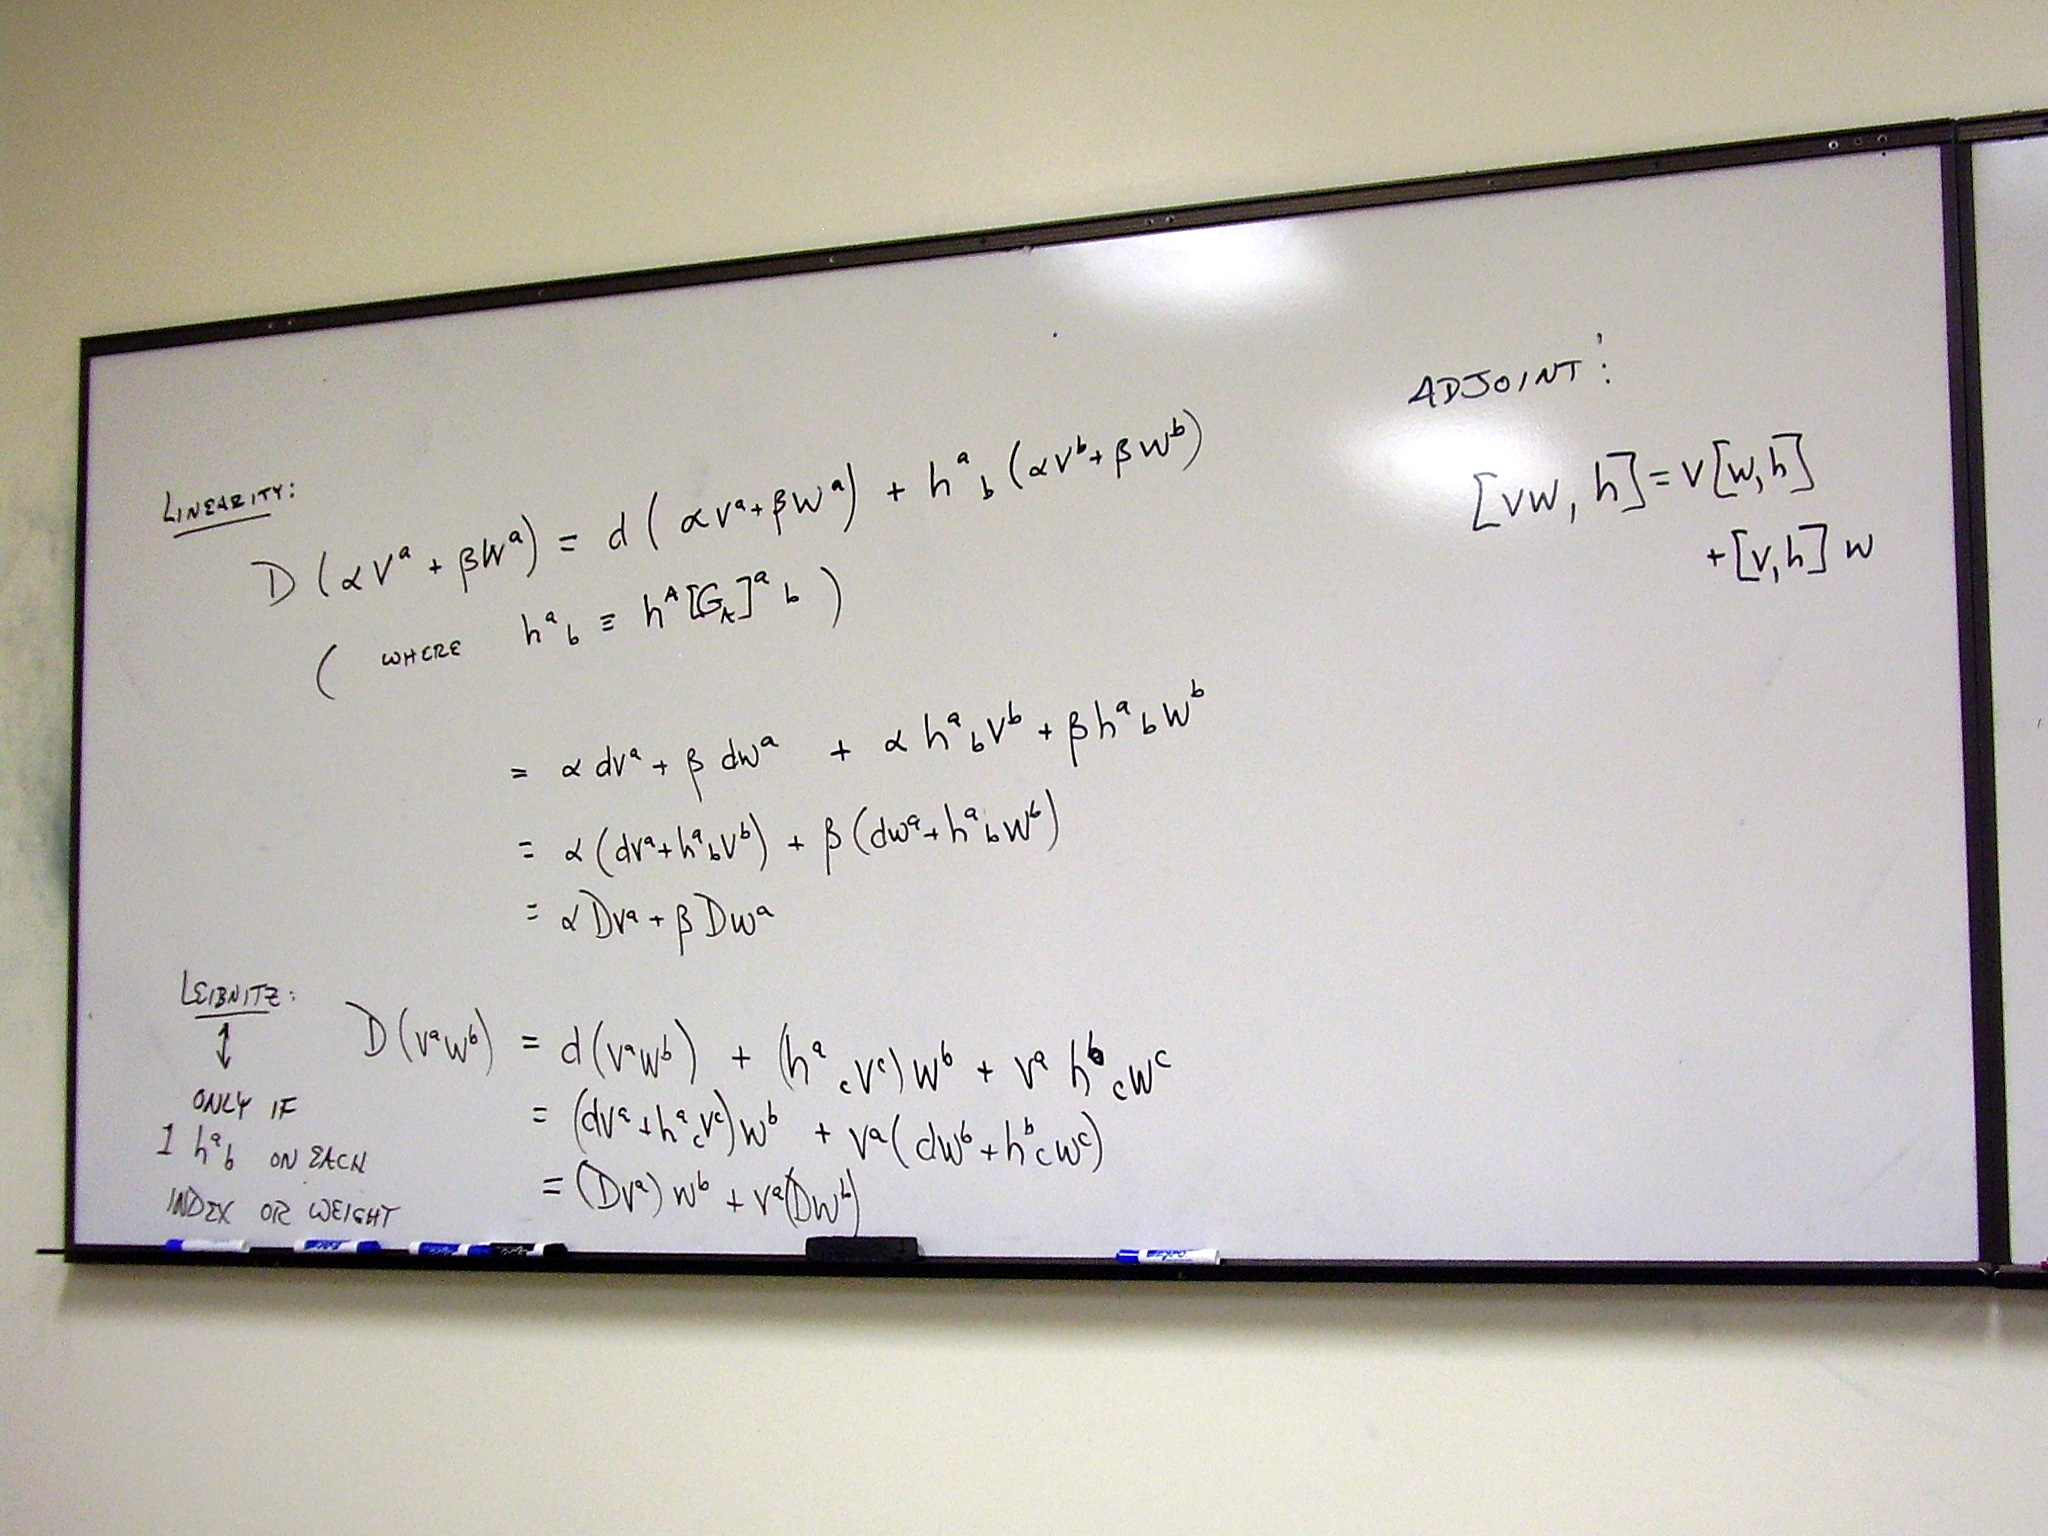 LINEARITY:
D(αvᵃ + βwᵃ) = d(αvᵃ + βwᵃ) + hᵃ_b(αvᵇ + βwᵇ)
( WHERE hᵃ_b ≡ h^A[G_A]ᵃ_b )
= α dvᵃ + β dwᵃ + α hᵃ_b vᵇ + β hᵃ_b wᵇ
= α(dvᵃ + hᵃ_b vᵇ) + β(dwᵃ + hᵃ_b wᵇ)
= αDvᵃ + βDwᵃ
LEIBNITZ:
↕
ONLY IF
1 hᵃ_b ON EACH
INDEX OR WEIGHT
D(vᵃwᵇ) = d(vᵃwᵇ) + (hᵃ_c vᶜ)wᵇ + vᵃ hᵇ_c wᶜ
= (dvᵃ + hᵃ_c vᶜ)wᵇ + vᵃ(dwᵇ + hᵇ_c wᶜ)
= (Dvᵃ)wᵇ + vᵃ(Dwᵇ)
ADJOINT:
[vw, h] = v[w, h]
+ [v, h] w